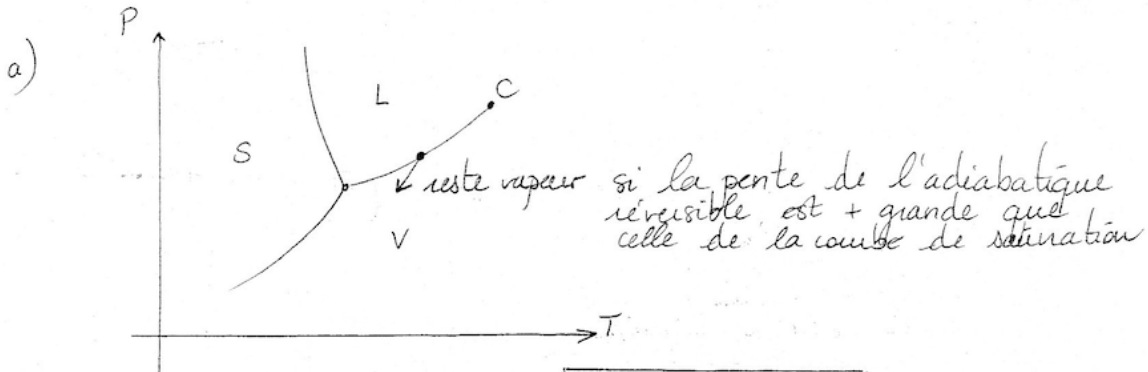 P
a)
L
C
S
reste vapeur si la pente de l'adiabatique
réversible est + grande que
V
celle de la courbe de saturation
T